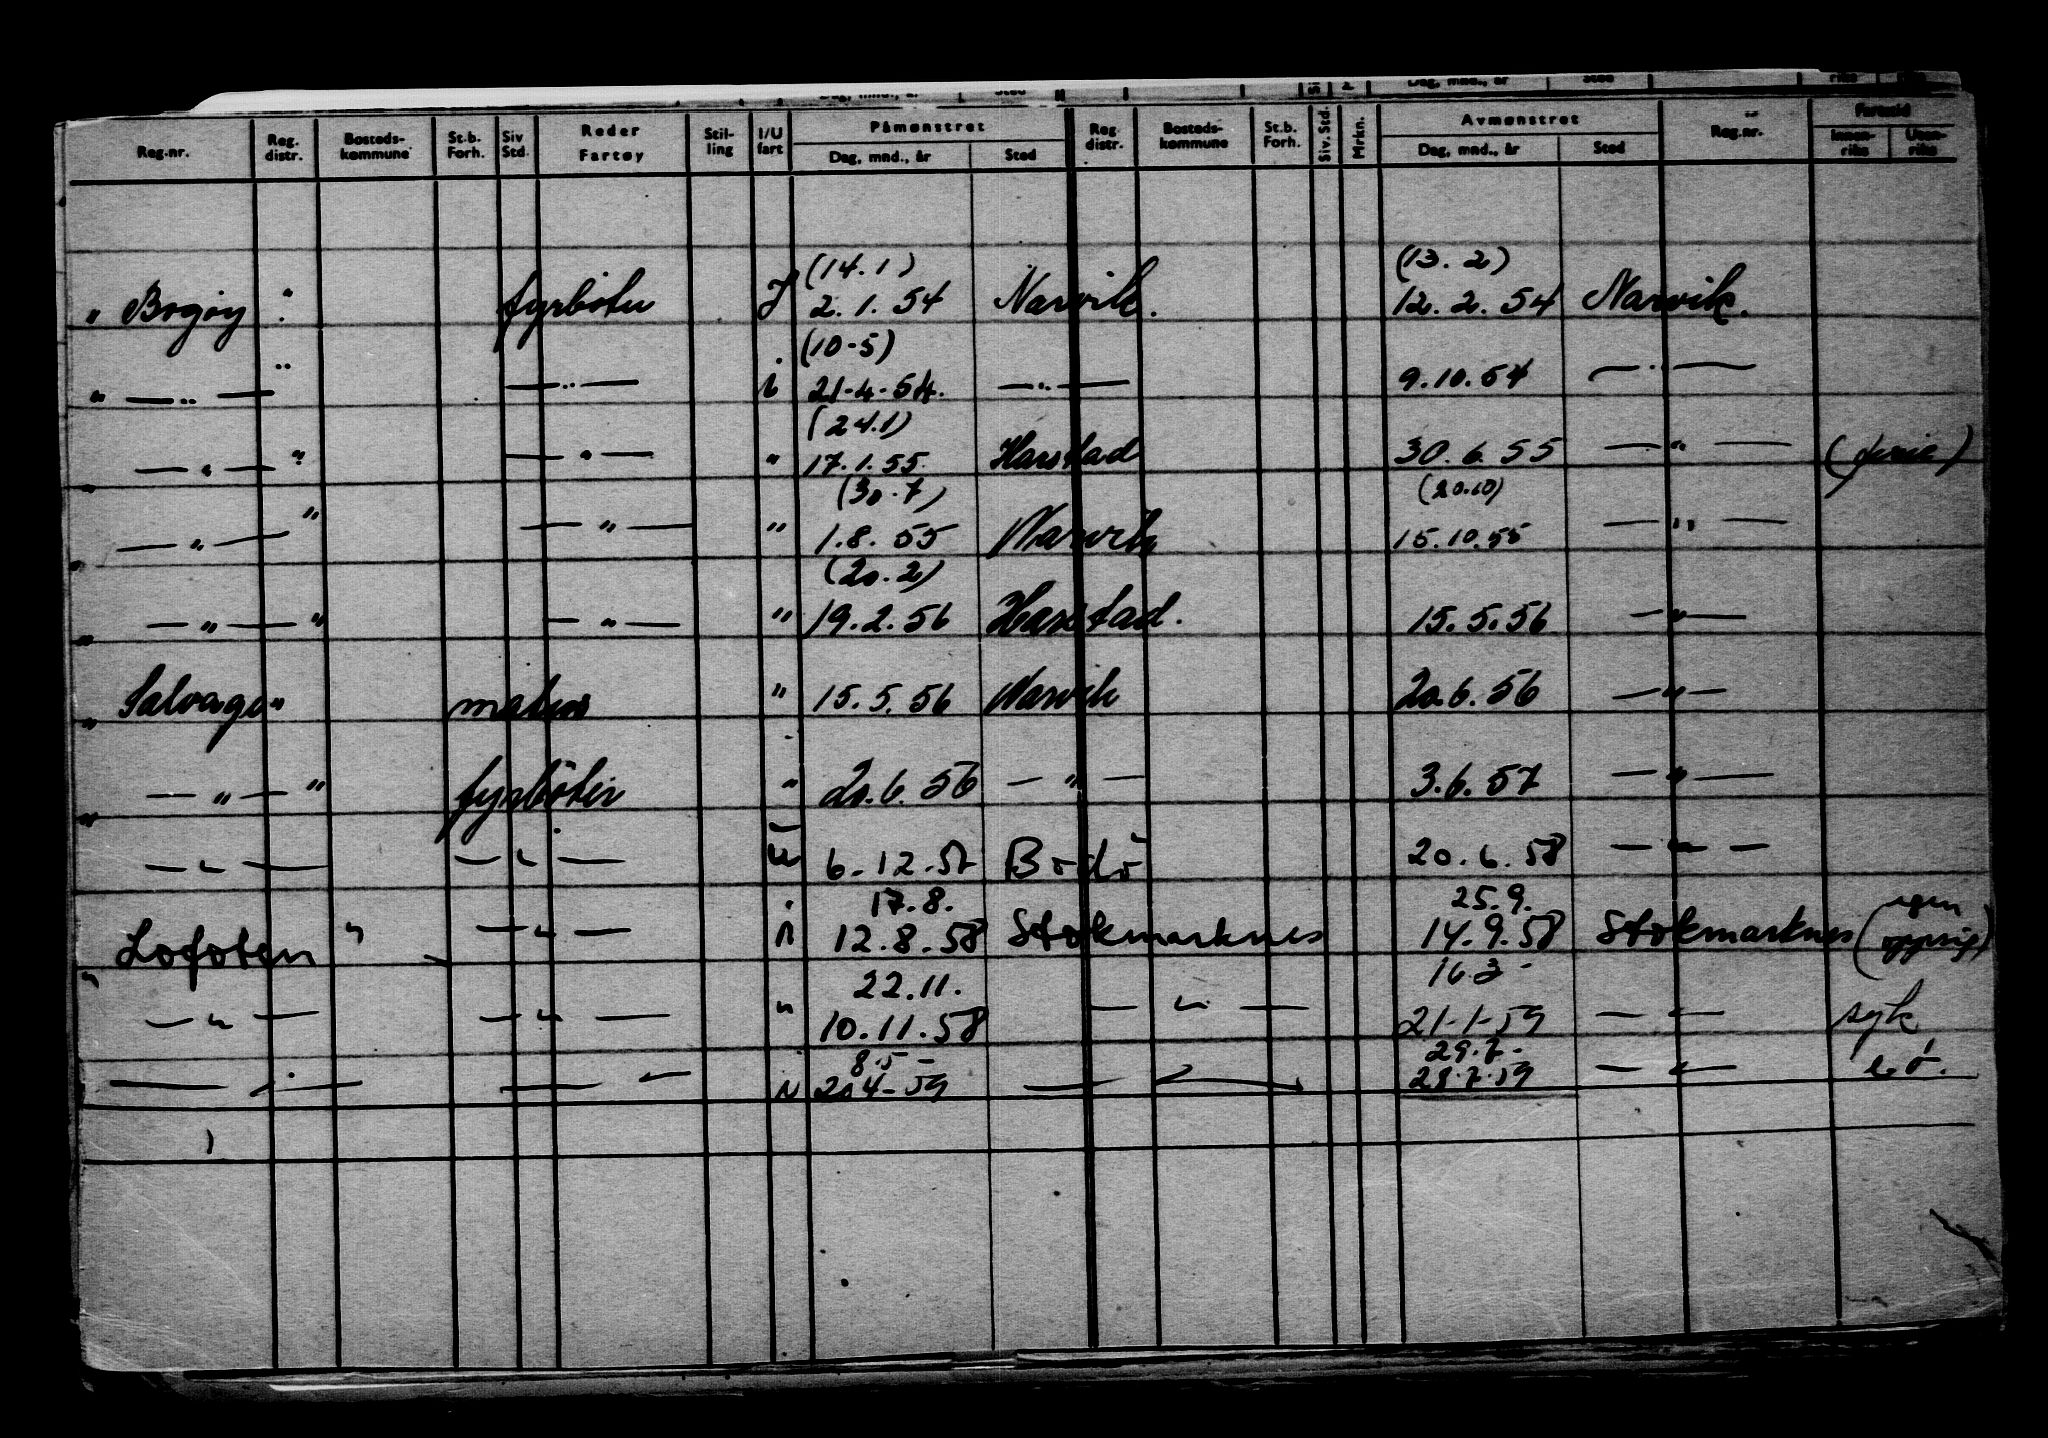 Dag, mnd., år Sted Dag, mnd., år Sted
Påmønstret Avmønstret Forseid
Reg.nr. Reg. distr. Bosteds- kommune St.b. Forh. Siv Std. Reder Fartøy Stil- ling I/U fart Dag, mnd., år Sted Reg. distr. Bosteds- kommune St.b. Forh. Siv. Std. Mrkn. Dag, mnd., år Sted Reg.nr. Innen- riks Uten- riks
(14.1) (13.2)
" Bogøy " fyrbøter J 2.1.54 Narvik. 12.2.54 Narvik.
(10-5)
" — " — " — " — i 21-4-54. — " — 9.10.54 — " —
(24.1)
" — " — " — " — " 17.1.55. Harstad 30.6.55 — " —
(30.7) (20.10)
" — " — " — " — " 1.8.55 Narvik 15.10.55 — " —
(20.2)
" — " — " — " — " 19.2.56 Harstad. 15.5.56 — " —
" Salvage " matros " 15.5.56 Narvik 20.6.56 — " —
" — " — " fyrbøter " 20.6.56 — " — 3.6.57 — " —
— " — — " — U 6.12.57 Bodö 20.6.58 — " —
17.8. 25.9.
" Lofoten " — " — n 12.8.58 Stokmarknes 14.9.58 Stokmarknes (egen oppsig)
22.11. 16.3 -
— " — — " — " 10.11.58 — " — 21-1-59 — " — syk
8.5 - 29.7 -
— " — — " — N 20.4-59 — " — 28.7.59 — " — e ö.